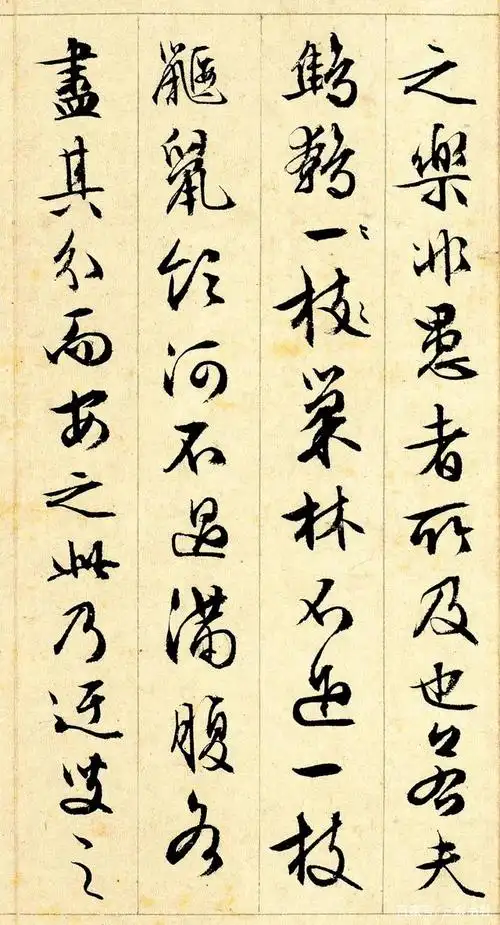 之樂非愚者所及也若夫
鷦鷯一枝巢林不過一枝
鼴鼠飲河不過滿腹各
盡其分而安之此乃迂叟之